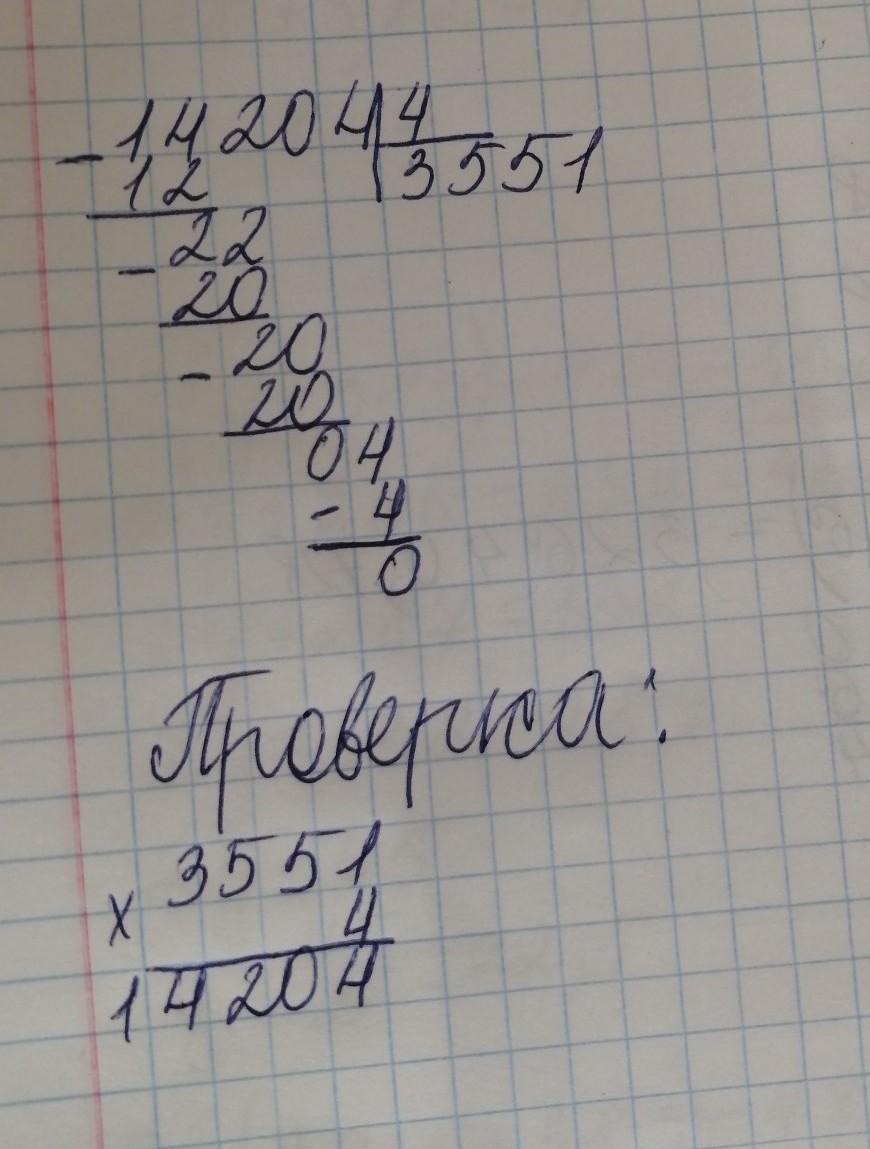 -14204|4
12 3551
-22
20
-20
20
04
-4
0
Проверка:
3551
x 4
14204